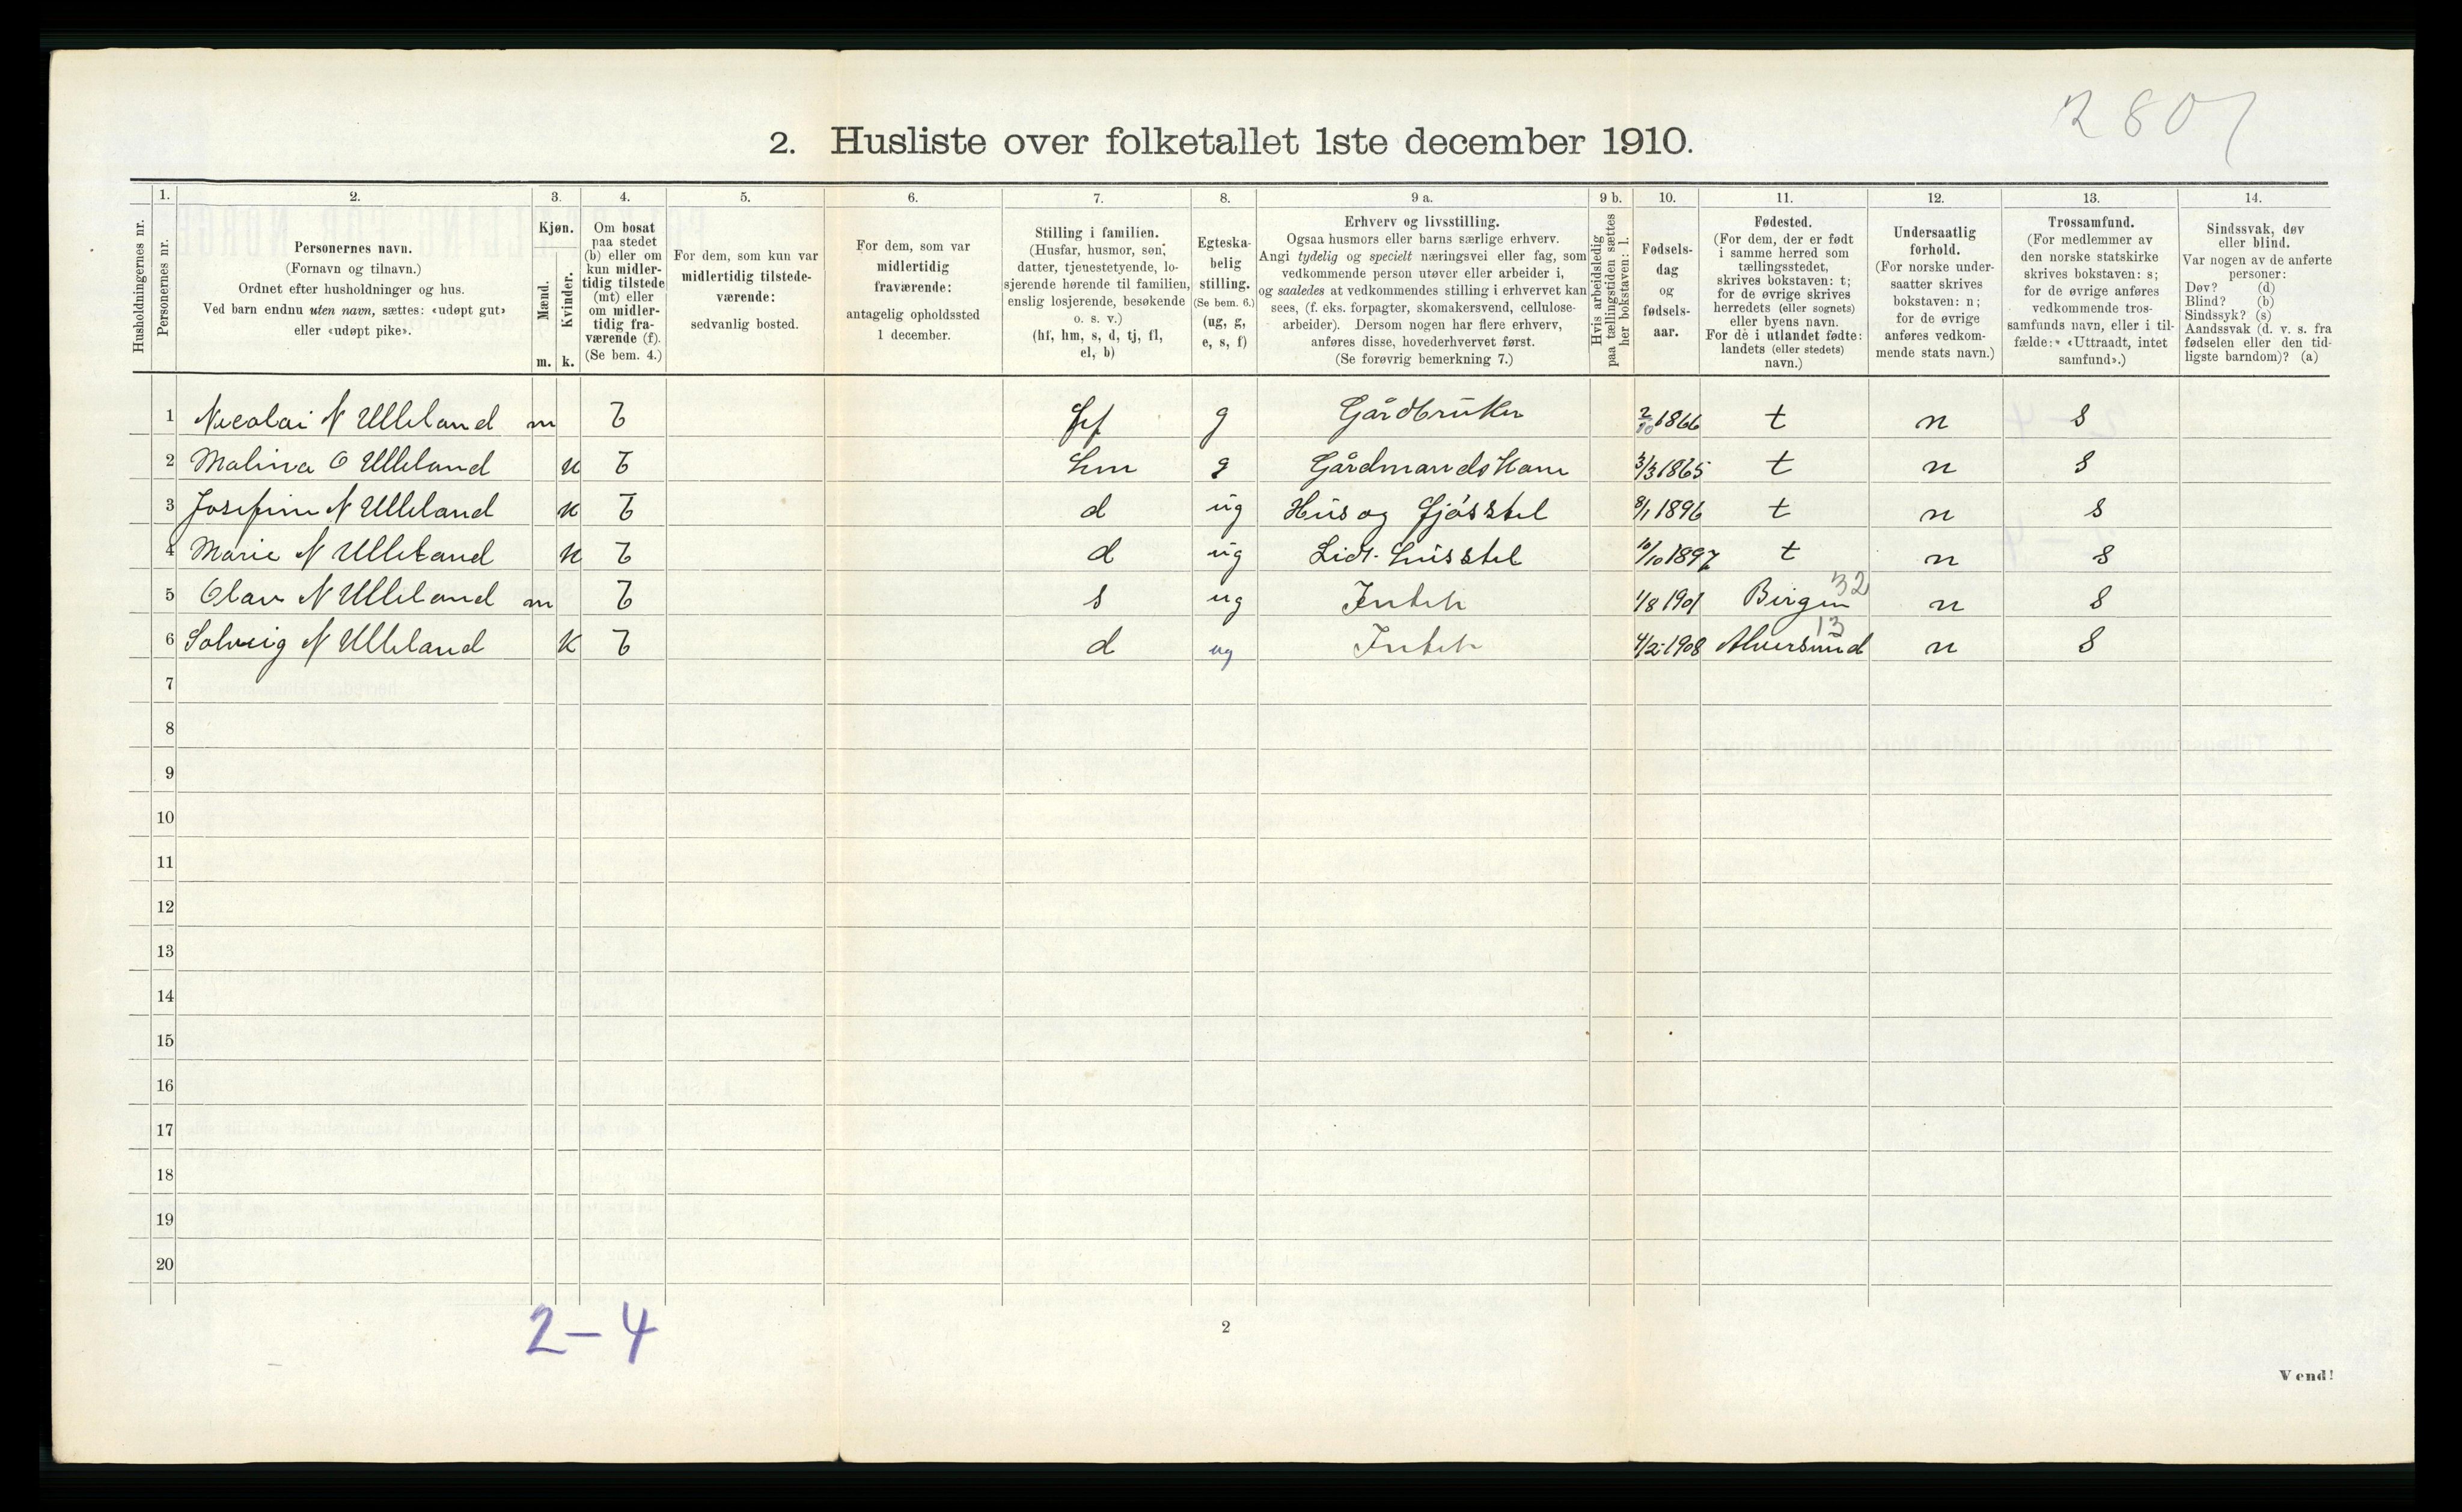 2807
2. Husliste over folketallet 1ste december 1910.
Husholdningernes nr.
1.
Personernes nr.
2.
Personernes navn.
(Fornavn og tilnavn.)
Ordnet efter husholdninger og hus.
Ved barn endnu uten navn, sættes: «udøpt gut»
eller «udøpt pike».
3.
Kjøn.
Mænd.
m.
Kvinder.
k.
4.
Om bosat
paa stedet
(b) eller om
kun midler-
tidig tilstede
(mt) eller
om midler-
tidig fra-
værende (f).
(Se bem. 4.)
5.
For dem, som kun var
midlertidig tilstede-
værende:
sedvanlig bosted.
6.
For dem, som var
midlertidig
fraværende:
antagelig opholdssted
1 december.
7.
Stilling i familien.
(Husfar, husmor, søn,
datter, tjenestetyende, lo-
sjerende hørende til familien,
enslig losjerende, besøkende
o. s. v.)
(hf, hm, s, d, tj, fl,
el, b)
8.
Egteska-
belig
stilling.
(Se bem. 6.)
(ug, g,
e, s, f)
9 a.
Erhverv og livsstilling.
Ogsaa husmors eller barns særlige erhverv.
Angi tydelig og specielt næringsvei eller fag, som
vedkommende person utøver eller arbeider i,
og saaledes at vedkommendes stilling i erhvervet kan
sees, (f. eks. forpagter, skomakersvend, cellulose-
arbeider). Dersom nogen har flere erhverv,
anføres disse, hovederhvervet først.
(Se forøvrig bemerkning 7.)
9 b.
Hvis arbeidsledig
paa tællingstiden sættes
her bokstaven: l.
10.
Fødsels-
dag
og
fødsels-
aar.
11.
Fødested.
(For dem, der er født
i samme herred som
tællingsstedet,
skrives bokstaven: t;
for de øvrige skrives
herredets (eller sognets)
eller byens navn.
For de i utlandet fødte:
landets (eller stedets)
navn.)
12.
Undersaatlig
forhold.
(For norske under-
saatter skrives
bokstaven: n;
for de øvrige
anføres vedkom-
mende stats navn.)
13.
Trossamfund.
(For medlemmer av
den norske statskirke
skrives bokstaven: s;
for de øvrige anføres
vedkommende tros-
samfunds navn, eller i til-
fælde: «Uttraadt, intet
samfund».)
14.
Sindssvak, døv
eller blind.
Var nogen av de anførte
personer:
Døv? (d)
Blind? (b)
Sindssyk? (s)
Aandssvak (d. v. s. fra
fødselen eller den tid-
ligste barndom)? (a)
1 Necolai N Ulleland m b hf g Gårdbruker 2/10 1866 t n s
2 Malina O Ulleland k b hm g Gårdmandskone 3/3 1865 t n s
3 Josefine N Ulleland k b d ug Hus og fjøsstel 8/1 1896 t n s
4 Marie N Ulleland k b d ug Lidt husstel 10/10 1897 t n s
5 Olav N Ulleland m b s ug Intet 1/8 1901 Bergen 32 n s
6 Solveig N Ulleland k b d ug Intet 4/2 1908 Alversund 13 n s
7
8
9
10
11
12
13
14
15
16
17
18
19
20
2-4
2
Vend!